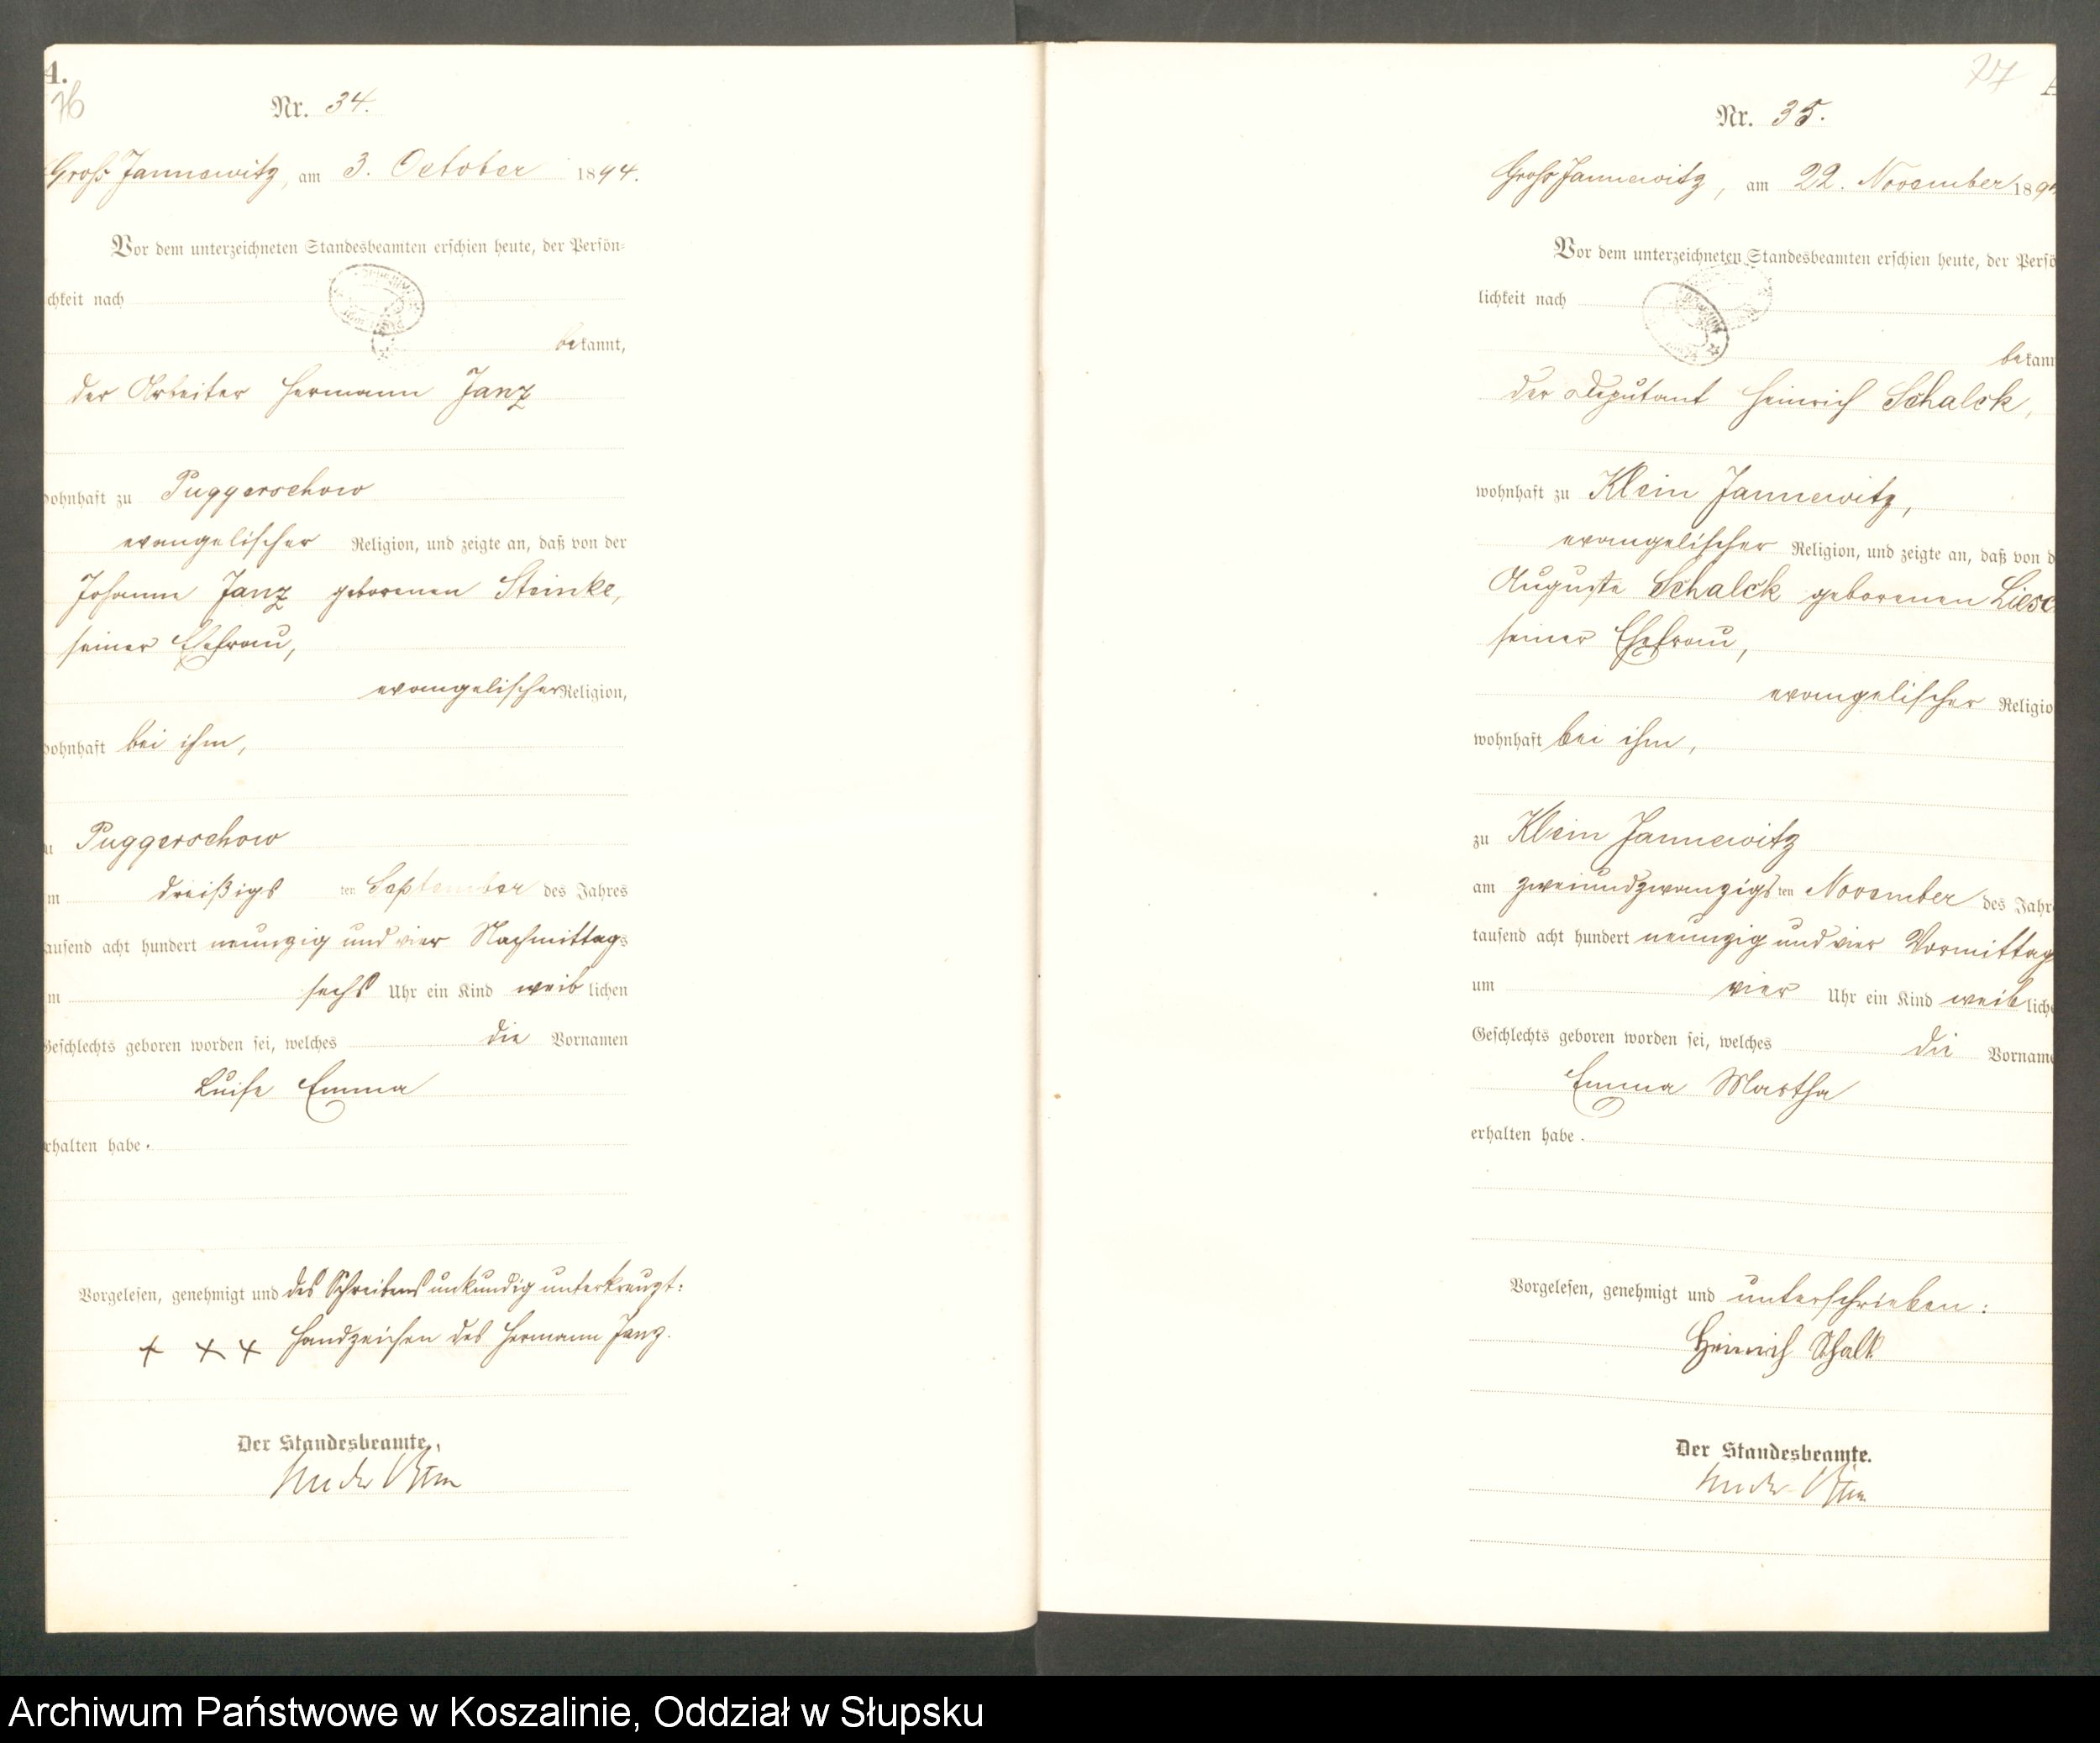 4.
76
Nr. 34.
Groß Jannewitz, am 3. October 1894.
Vor dem unterzeichneten Standesbeamten erschien heute, der Persön-
chkeit nach
bekannt,
der Arbeiter Hermann Janz
ohnhaft zu Puggerschow
evangelischer Religion, und zeigte an, daß von der
Johanne Janz geborenen Steinke,
seiner Ehefrau,
evangelischer Religion,
ohnhaft bei ihm,
u Puggerschow
m dreißigs ten September des Jahres
ausend acht hundert neunzig und vier Nachmittags
m sechs Uhr ein Kind weib lichen
Geschlechts geboren worden sei, welches die Vornamen
Luise Emma
rhalten habe.
Vorgelesen, genehmigt und des Schreibens unkundig unterkreuzt:
+ + + Handzeichen des Hermann Janz.
Der Standesbeamte.
77
Nr. 35.
Groß Jannewitz, am 22. November 189
Vor dem unterzeichneten Standesbeamten erschien heute, der Persö
lichkeit nach
bekann
der Deputant Heinrich Schalck,
wohnhaft zu Klein Jannewitz,
evangelischer Religion, und zeigte an, daß von d
Auguste Schalck geborenen Liesc
seiner Ehefrau,
evangelischer Religio
wohnhaft bei ihm,
zu Klein Jannewitz
am zweiundzwanzigs ten November des Jahr
tausend acht hundert neunzig und vier Vormittag
um vier Uhr ein Kind weib liche
Geschlechts geboren worden sei, welches die Vorname
Emma Martha
erhalten habe.
Vorgelesen, genehmigt und unterschrieben:
Heinrich Schalk
Der Standesbeamte.
Archiwum Państwowe w Koszalinie, Oddział w Słupsku